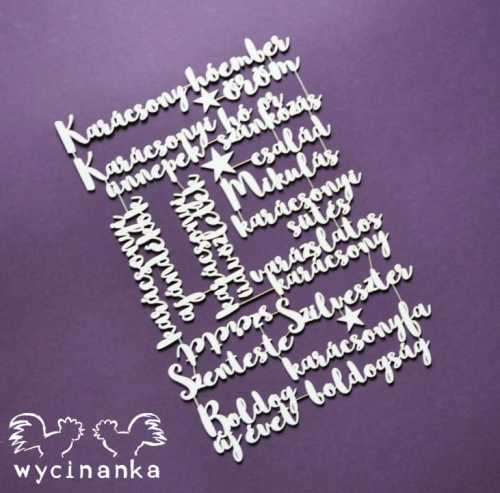 Karácsony hóember
öröm
Karácsonyi hó ér
ünnepek szánkózás
család
Mikulás
karácsonyi
sütés
varázslatos
karácsony
Szenteste Szilveszter
karácsonyfa
Boldog
új évet boldogság
wycinanka